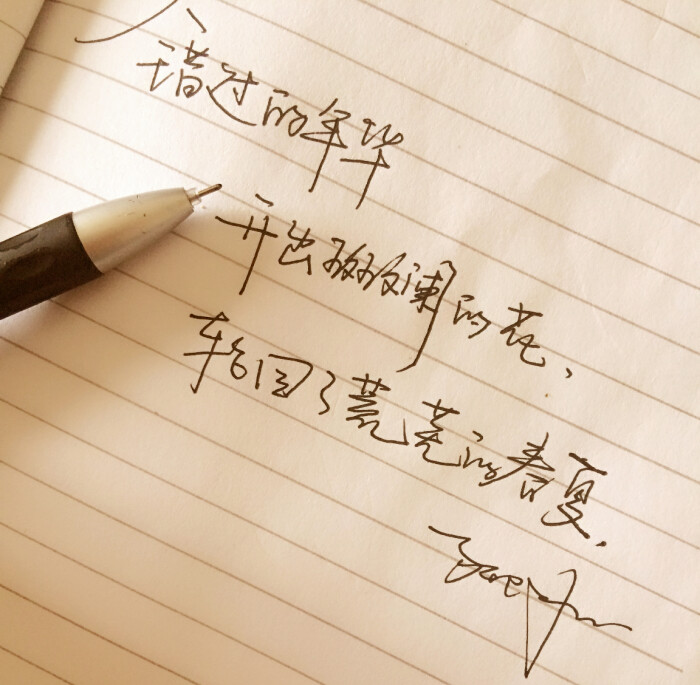 错过的年华
开出斑斓的花、
轮回了荒芜的春夏.